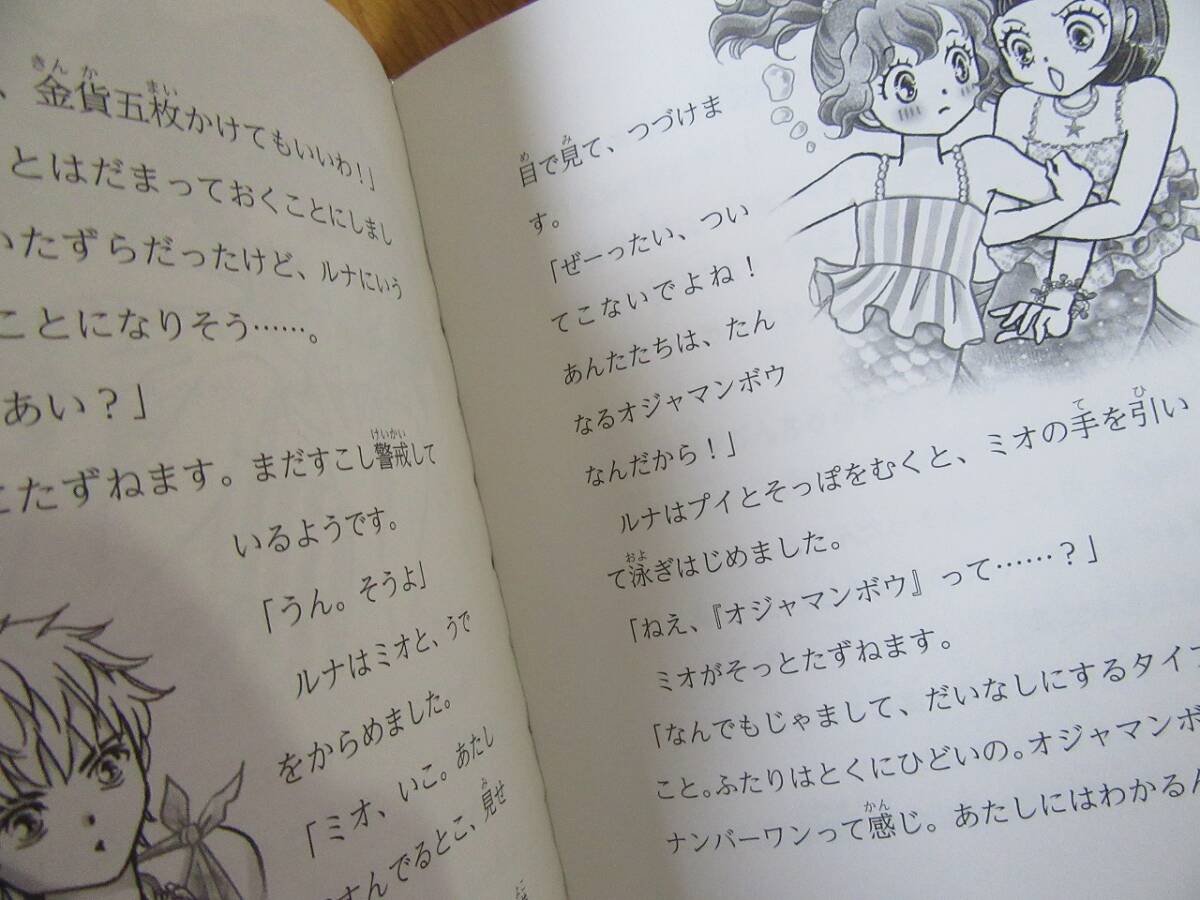 、金貨五枚かけてもいいわ!」
とはだまっておくことにしまし
いたずらだったけど、ルナにいう
ことになりそう……。
あい?」
こたずねます。まだすこし警戒して
いるようです。
「うん。そうよ」
ルナはミオと、うで
をからめました。
「ミオ、いこ。あたし
すんでるとこ、見せ
目で見て、つづけま
す。
「ぜーったい、つい
てこないでよね!
あんたたちは、たん
なるオジャマンボウ
なんだから!」
ルナはプイとそっぽをむくと、ミオの手を引い
て泳ぎはじめました。
「ねえ、『オジャマンボウ』って……?」
ミオがそっとたずねます。
「なんでもじゃまして、だいなしにするタイプ
こと。ふたりはとくにひどいの。オジャマンボ
ナンバーワンって感じ。あたしにはわかる